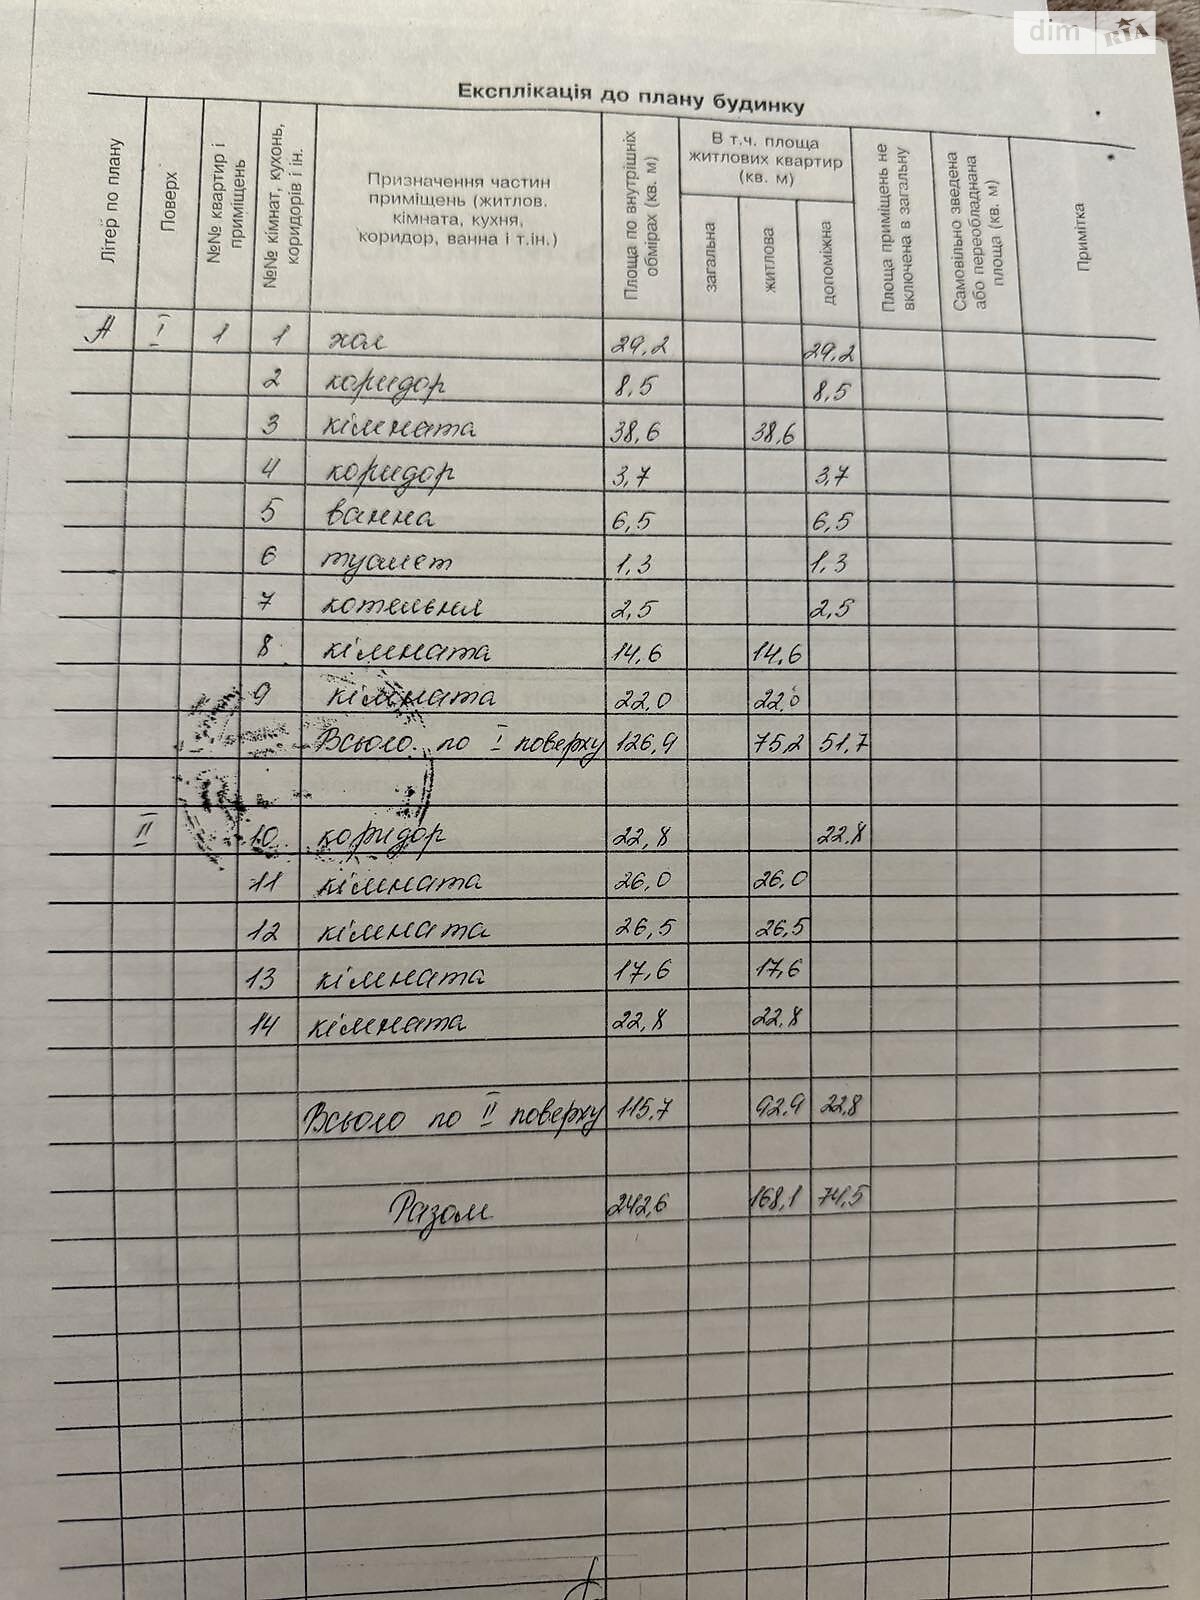 dim RIA
Експлікація до плану будинку
Літер по плану
Поверх
№№ квартир і приміщень
№№ кімнат, кухонь, коридорів і ін.
Призначення частин
приміщень (житлов.
кімната, кухня,
коридор, ванна і т.ін.)
Площа по внутрішніх обмірах (кв. м)
В т.ч. площа
житлових квартир
(кв. м)
загальна
житлова
допоміжна
Площа приміщень не включена в загальну
Самовільно зведена або переобладнана площа (кв. м)
Примітка
А I 1 1 хол 29,2 29,2
2 коридор 8,5 8,5
3 кімната 38,6 38,6
4 коридор 3,7 3,7
5 ванна 6,5 6,5
6 туалет 1,3 1,3
7 котельня 2,5 2,5
8 кімната 14,6 14,6
9 кімната 22,0 22,0
Всього по I поверху 126,9 75,2 51,7
II 10 коридор 22,8 22,8
11 кімната 26,0 26,0
12 кімната 26,5 26,5
13 кімната 17,6 17,6
14 кімната 22,8 22,8
Всього по II поверху 115,7 92,9 22,8
Разом 242,6 168,1 74,5